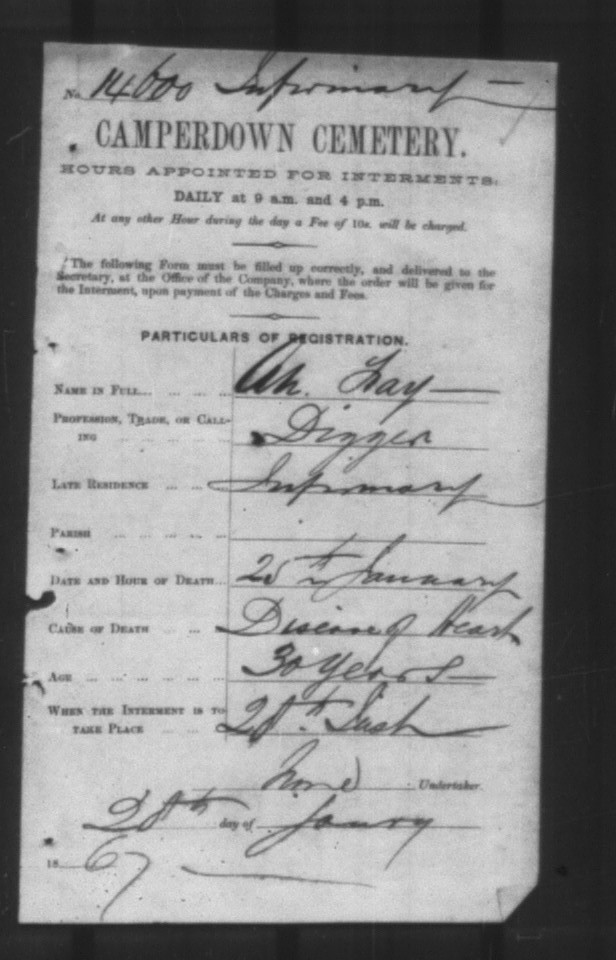 No. 14600 Infirmary —
CAMPERDOWN CEMETERY.
HOURS APPOINTED FOR INTERMENTS:
DAILY at 9 a.m. and 4 p.m.
At any other Hour during the day a Fee of 10s. will be charged.
The following Form must be filled up correctly, and delivered to the
Secretary, at the Office of the Company, where the order will be given for
the Interment, upon payment of the Charges and Fees.
PARTICULARS OF REGISTRATION.
NAME IN FULL... ... ... ... Ah.
PROFESSION, TRADE, OR CALL-
ING ... ... ... ... Digger
LATE RESIDENCE ... ... Infirmary
PARISH ... ... ... ...
DATE AND HOUR OF DEATH... 25th January
CAUSE OF DEATH ... ... Disease of Heart
AGE ... ... ... ... ... ... 30 Years —
WHEN THE INTERMENT IS TO
TAKE PLACE ... ... 28th Inst
Undertaker.
28th day of Janry
18 67